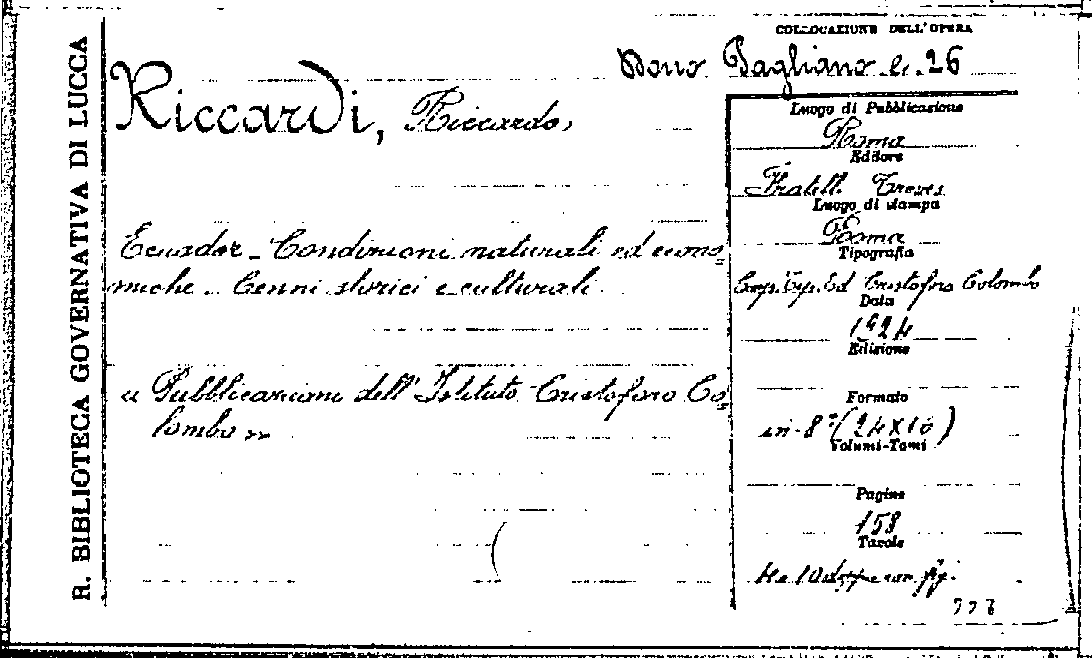 R. BIBLIOTECA GOVERNATIVA DI LUCCA
COLLOCAZIONE DELL'OPERA
Dono Pagliano 26
Riccardi, Riccardo,
Ecuador - Condizioni naturali ed econo=
miche - Cenni storici e culturali.
« Pubblicazioni dell'Istituto Cristoforo Co=
lombo »
Luogo di Pubblicazione
Roma
Editore
Fratelli Treves
Luogo di stampa
Roma
Tipografia
Tip. Ed Cristoforo Colombo
Data
1924
Edizione
Formato
in-8° (24x16)
Volumi-Tomi
Pagine
158
Tavole
con fig.